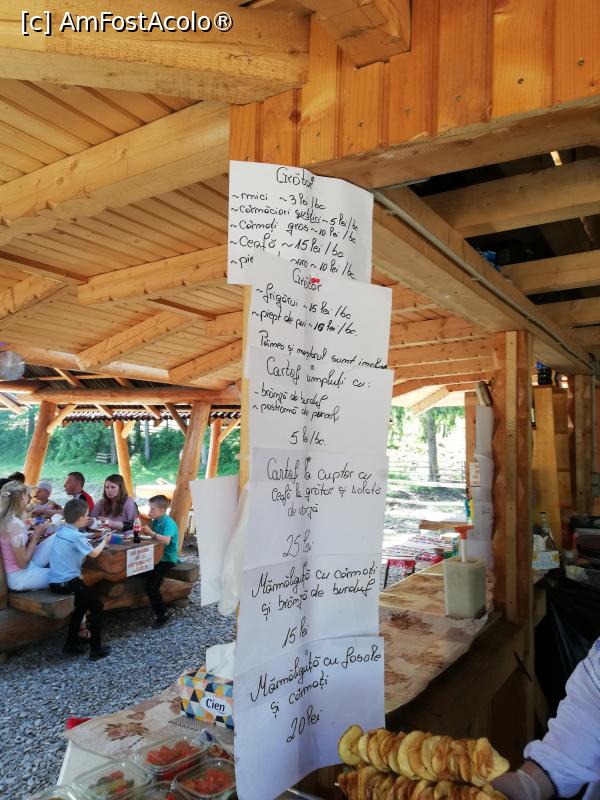 [c] AmFostAcolo®
Grătar
~ mici ~ 3 lei/bc
~ cârnăciori subțiri ~ 5 lei/bc
~ Cârnați groși ~ 10 lei/bc
~ Ceafă ~ 15 lei/bc
~ pie ~ 10 lei/bc.
Grătar
~ frigărui ~ 15 lei/bc
~ piept de pui ~ 10 lei/bc.
Pâinea și muștarul sunt
Cartof umpluți cu:
~ brânză de burduf
~ pastramă de porc
5 lei/bc.
Cartof la cuptor cu
ceafă la grătar și salată
de varză
25 lei
Mămăliguță cu cârnați
și brânză de burduf
15 lei
Mămăliguță cu fasole
și cârnați
20 lei
Cien